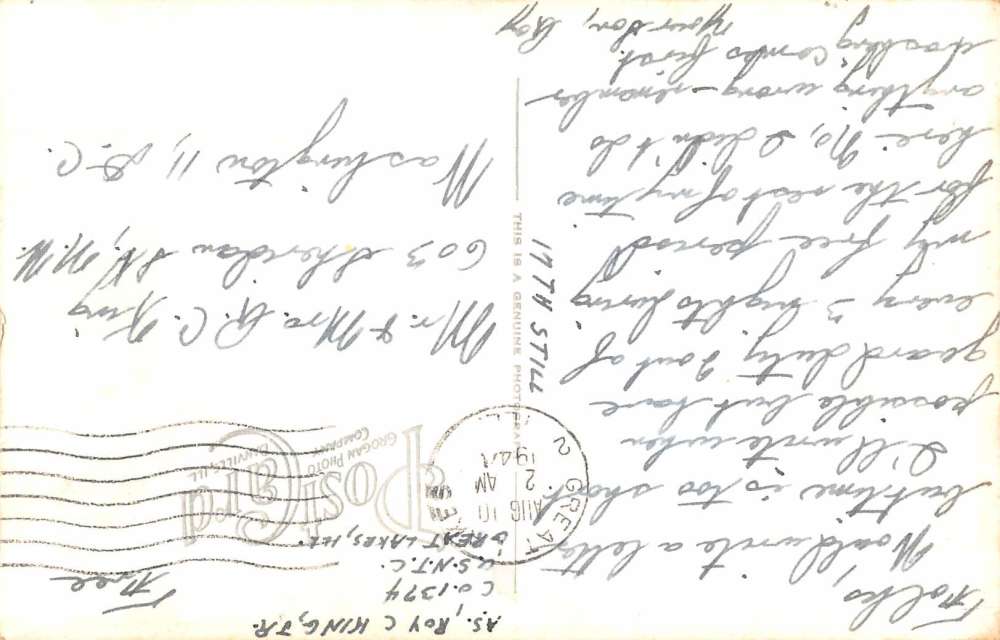 17TH STILL
Folks,
Would write a letter
but time is too short.
I'll write when
possible but have
guard duty 2 out of
every 3 nights during
my free period
for the rest of my time
here. No, I didn't do
anything wrong - remember
first.
Your Son, Roy
THIS IS A GENUINE PHOTOGRAPH
A.S., ROY C KING, JR.
CO. 1374
U.S.N.T.C.
GREAT LAKES, ILL.
Free
Post Card
GROGAN PHOTO
COMPANY
DANVILLE, ILL
GREAT
AUG 10
2 AM
194
2
Mr. & Mrs. R. C. King
603 Sheridan St., N.W.
Washington 11, D.C.